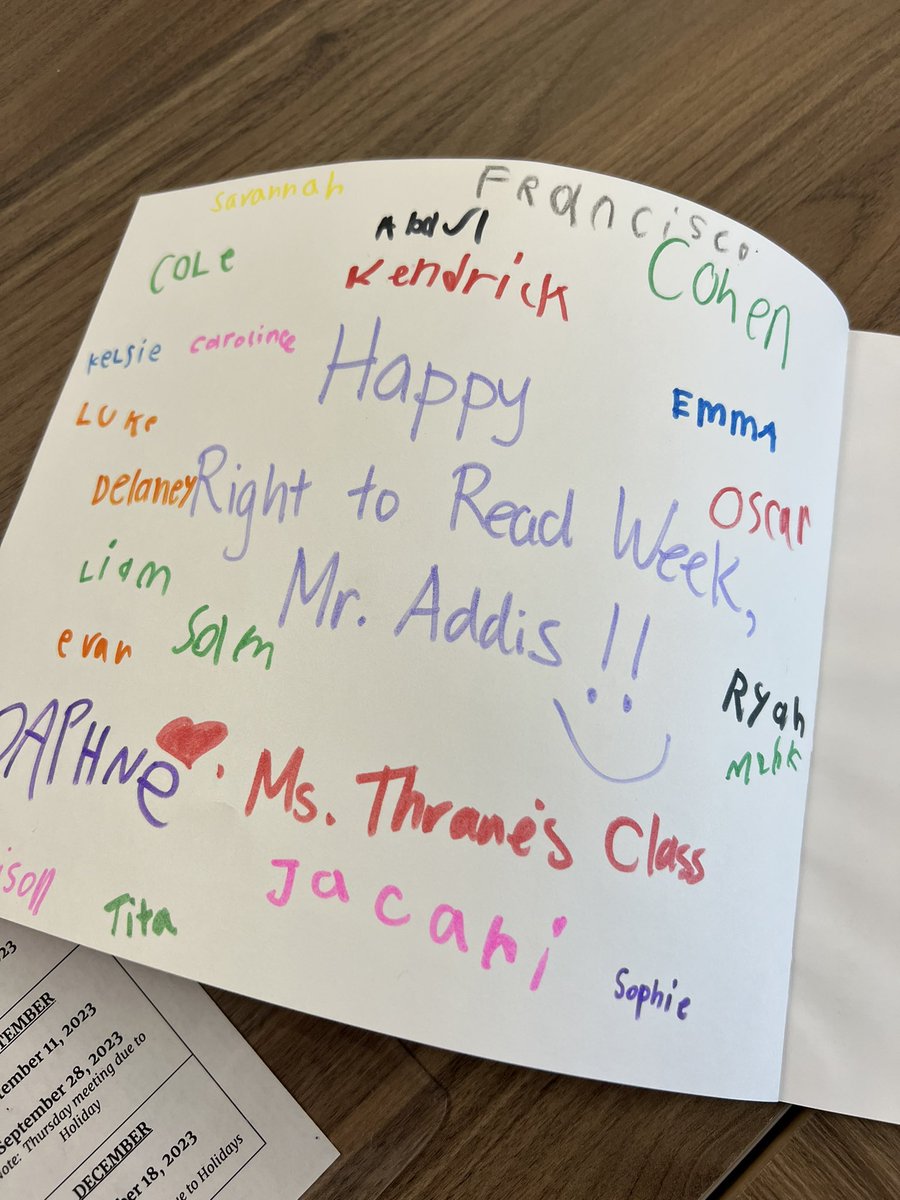 Savannah
FRancisco
Abdul
COLe
Kendrick
Cohen
Kelsie
caroline
Happy
EmmA
LUKe
Delaney
Right to Read Week,
Oscar
Liam
Mr. Addis !!
evan
Salm
RYah
DAPHNe
Ms. Thrane's Class
ison
Jacari
Tita
Sophie
2023
TEMBER
tember 11, 2023
September 28, 2023
Note: Thursday meeting due to
Holiday
DECEMBER
ber 18, 2023
ue to Holidays